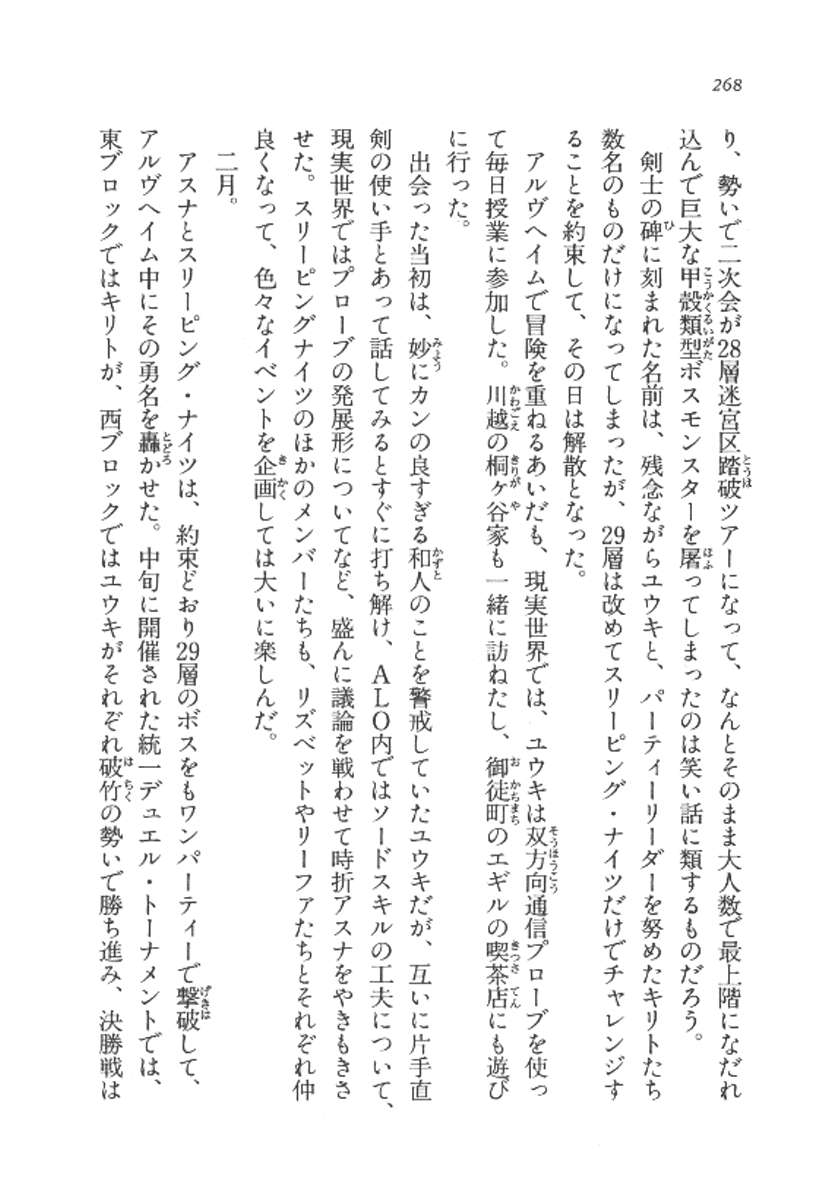 268
り、勢いで二次会が28層迷宮区踏破ツアーになって、なんとそのまま大人数で最上階になだれ
込んで巨大な甲殻類型ボスモンスターを屠ってしまったのは笑い話に類するものだろう。
剣士の碑に刻まれた名前は、残念ながらユウキと、パーティーリーダーを努めたキリトたち
数名のものだけになってしまったが、29層は改めてスリーピング・ナイツだけでチャレンジす
ることを約束して、その日は解散となった。
アルヴヘイムで冒険を重ねるあいだも、現実世界では、ユウキは双方向通信プローブを使っ
て毎日授業に参加した。川越の桐ヶ谷家も一緒に訪ねたし、御徒町のエギルの喫茶店にも遊び
に行った。
出会った当初は、妙にカンの良すぎる和人のことを警戒していたユウキだが、互いに片手直
剣の使い手とあって話してみるとすぐに打ち解け、ALO内ではソードスキルの工夫について、
現実世界ではプローブの発展形についてなど、盛んに議論を戦わせて時折アスナをやきもきさ
せた。スリーピングナイツのほかのメンバーたちも、リズベットやリーファたちとそれぞれ仲
良くなって、色々なイベントを企画しては大いに楽しんだ。
二月。
アスナとスリーピング・ナイツは、約束どおり29層のボスをもワンパーティーで撃破して、
アルヴヘイム中にその勇名を轟かせた。中旬に開催された統一デュエル・トーナメントでは、
東ブロックではキリトが、西ブロックではユウキがそれぞれ破竹の勢いで勝ち進み、決勝戦は